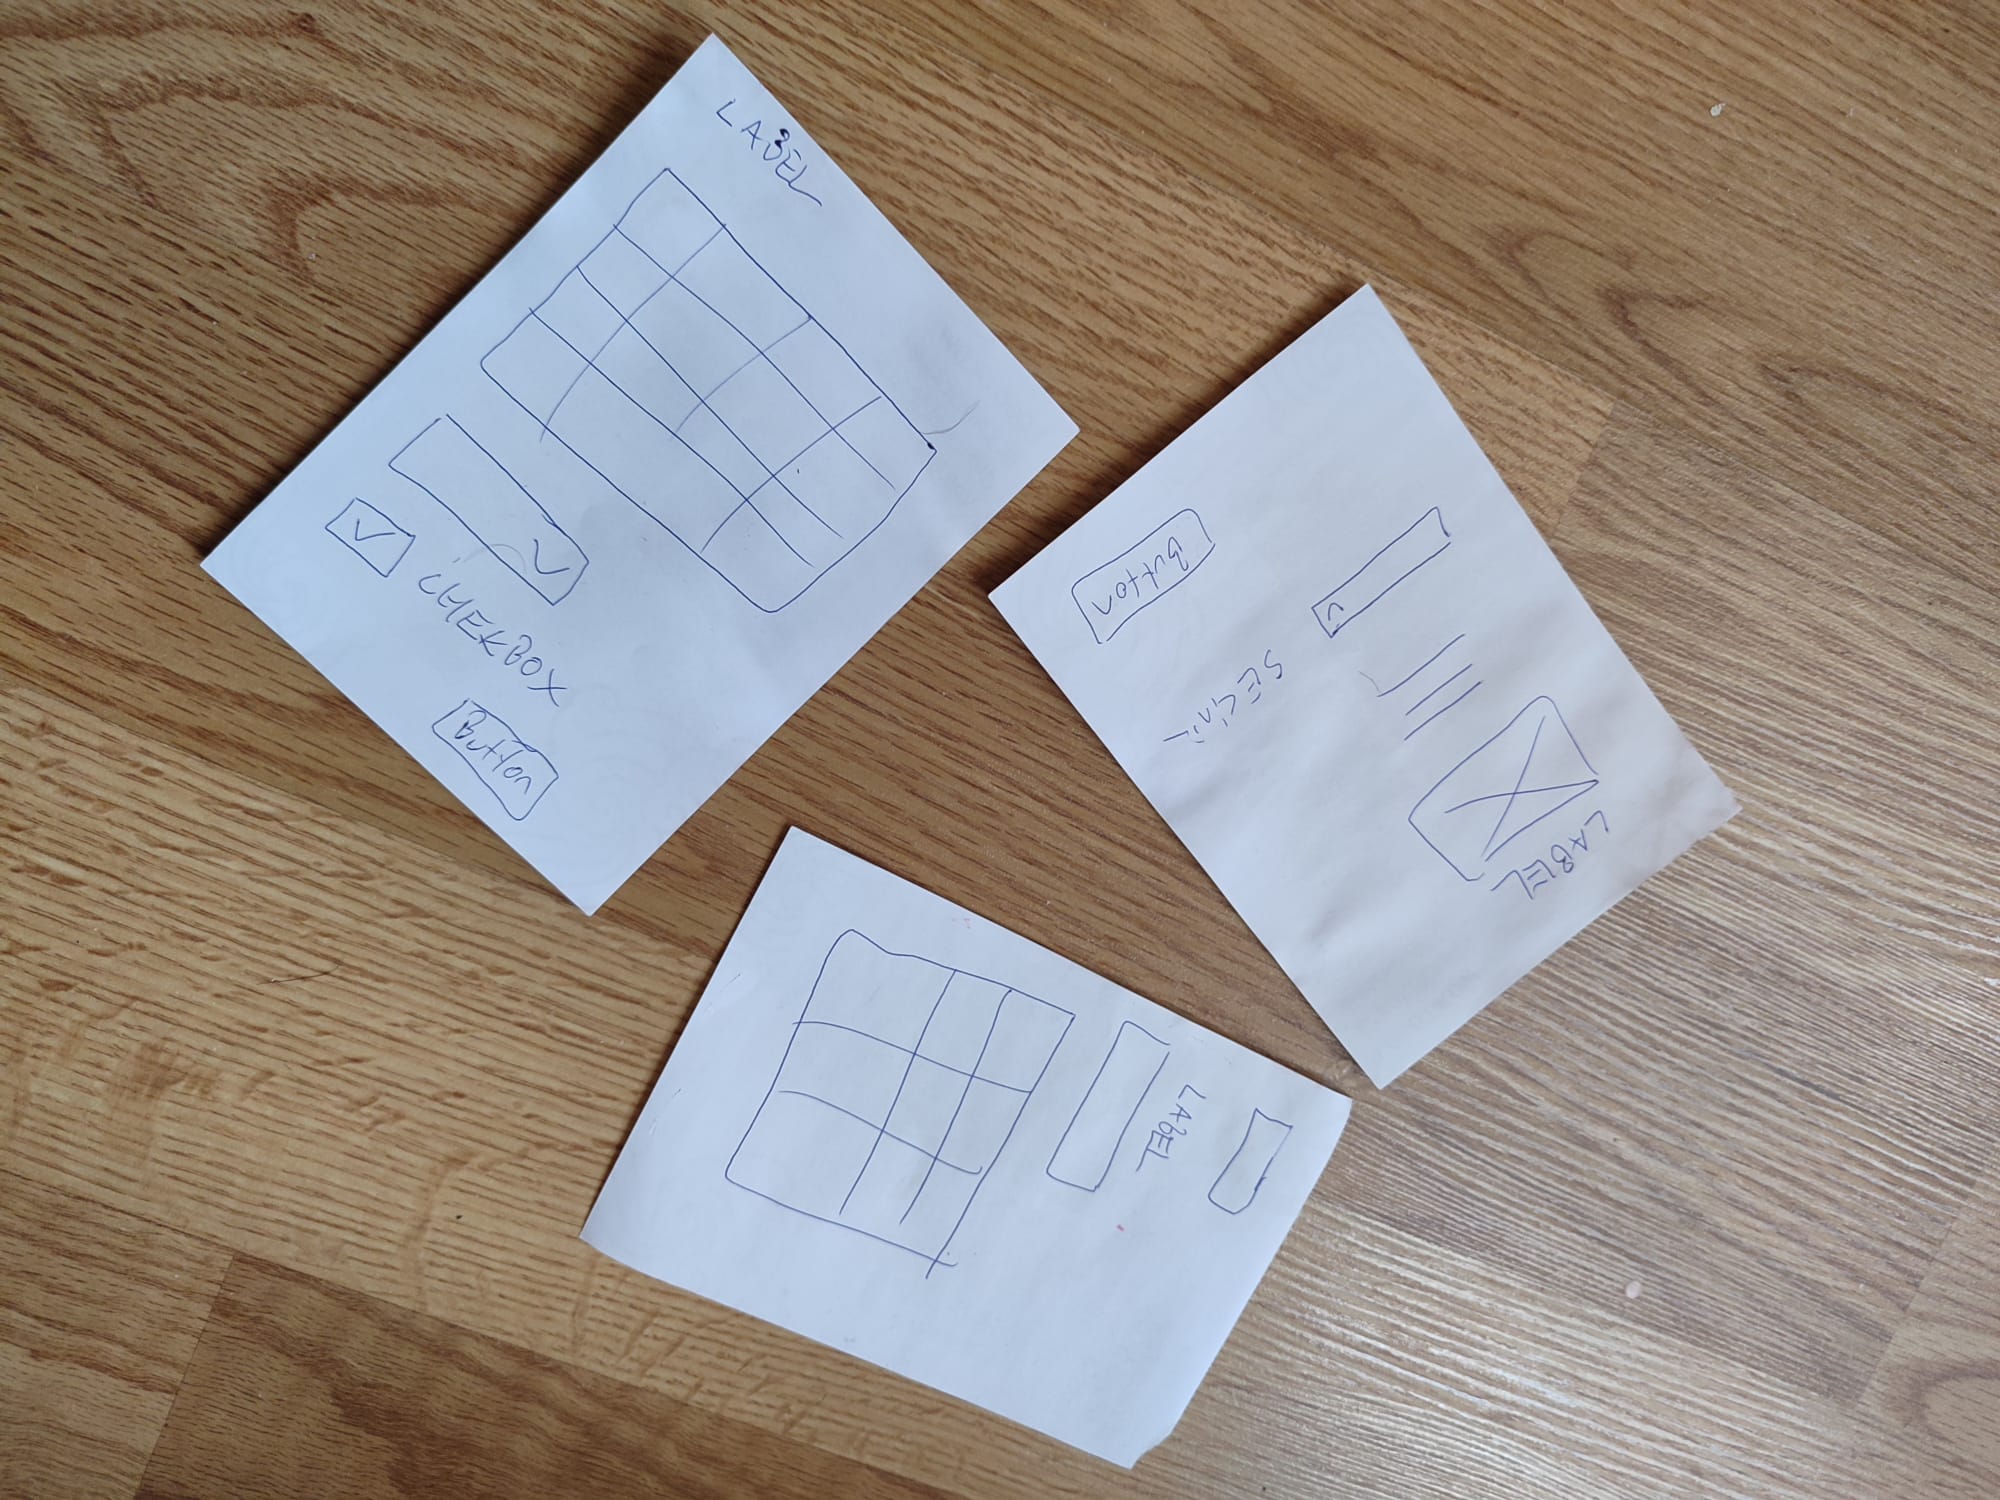 LABEL
CHEKBOX
Button
LABEL
SEÇİNİ
Button
LABEL